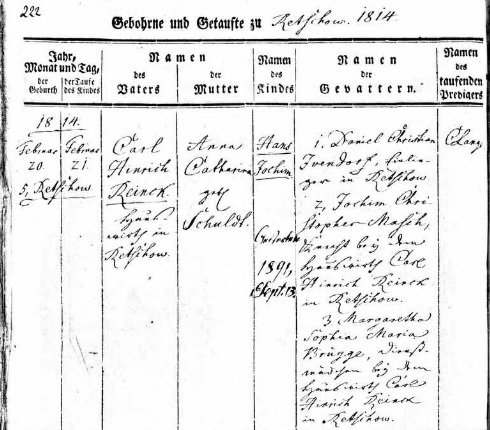 222
Gebohrne und Getaufte zu Retschow. 1814.
Jahr, Monat und Tag,
der Geburth
der Taufe des Kindes
Namen des Vaters
Namen der Mutter
Namen des Kindes
Namen der Gevattern.
Namen des taufenden Predigers
18 14.
Februar 20.
Februar 21.
5, Retschow
Carl
Hinrich
Reinck
Hauswirth in
Retschow.
Anna
Catharina
geb.
Schuldt.
Hans
Jochim
1891,
Sept. 13.
1, Daniel Christian
Evendorf, Einlie-
ger in Retschow
2, Jochim Chri-
stopher Masch,
Knecht bey dem
Hauswirth Carl
Hinrich Reinck
in Retschow.
3 Margaretha
Sophia Maria
Brügge, Dienst-
mädchen bey dem
Hauswirth Carl
Hinrich Reinck
in Retschow.
CLang